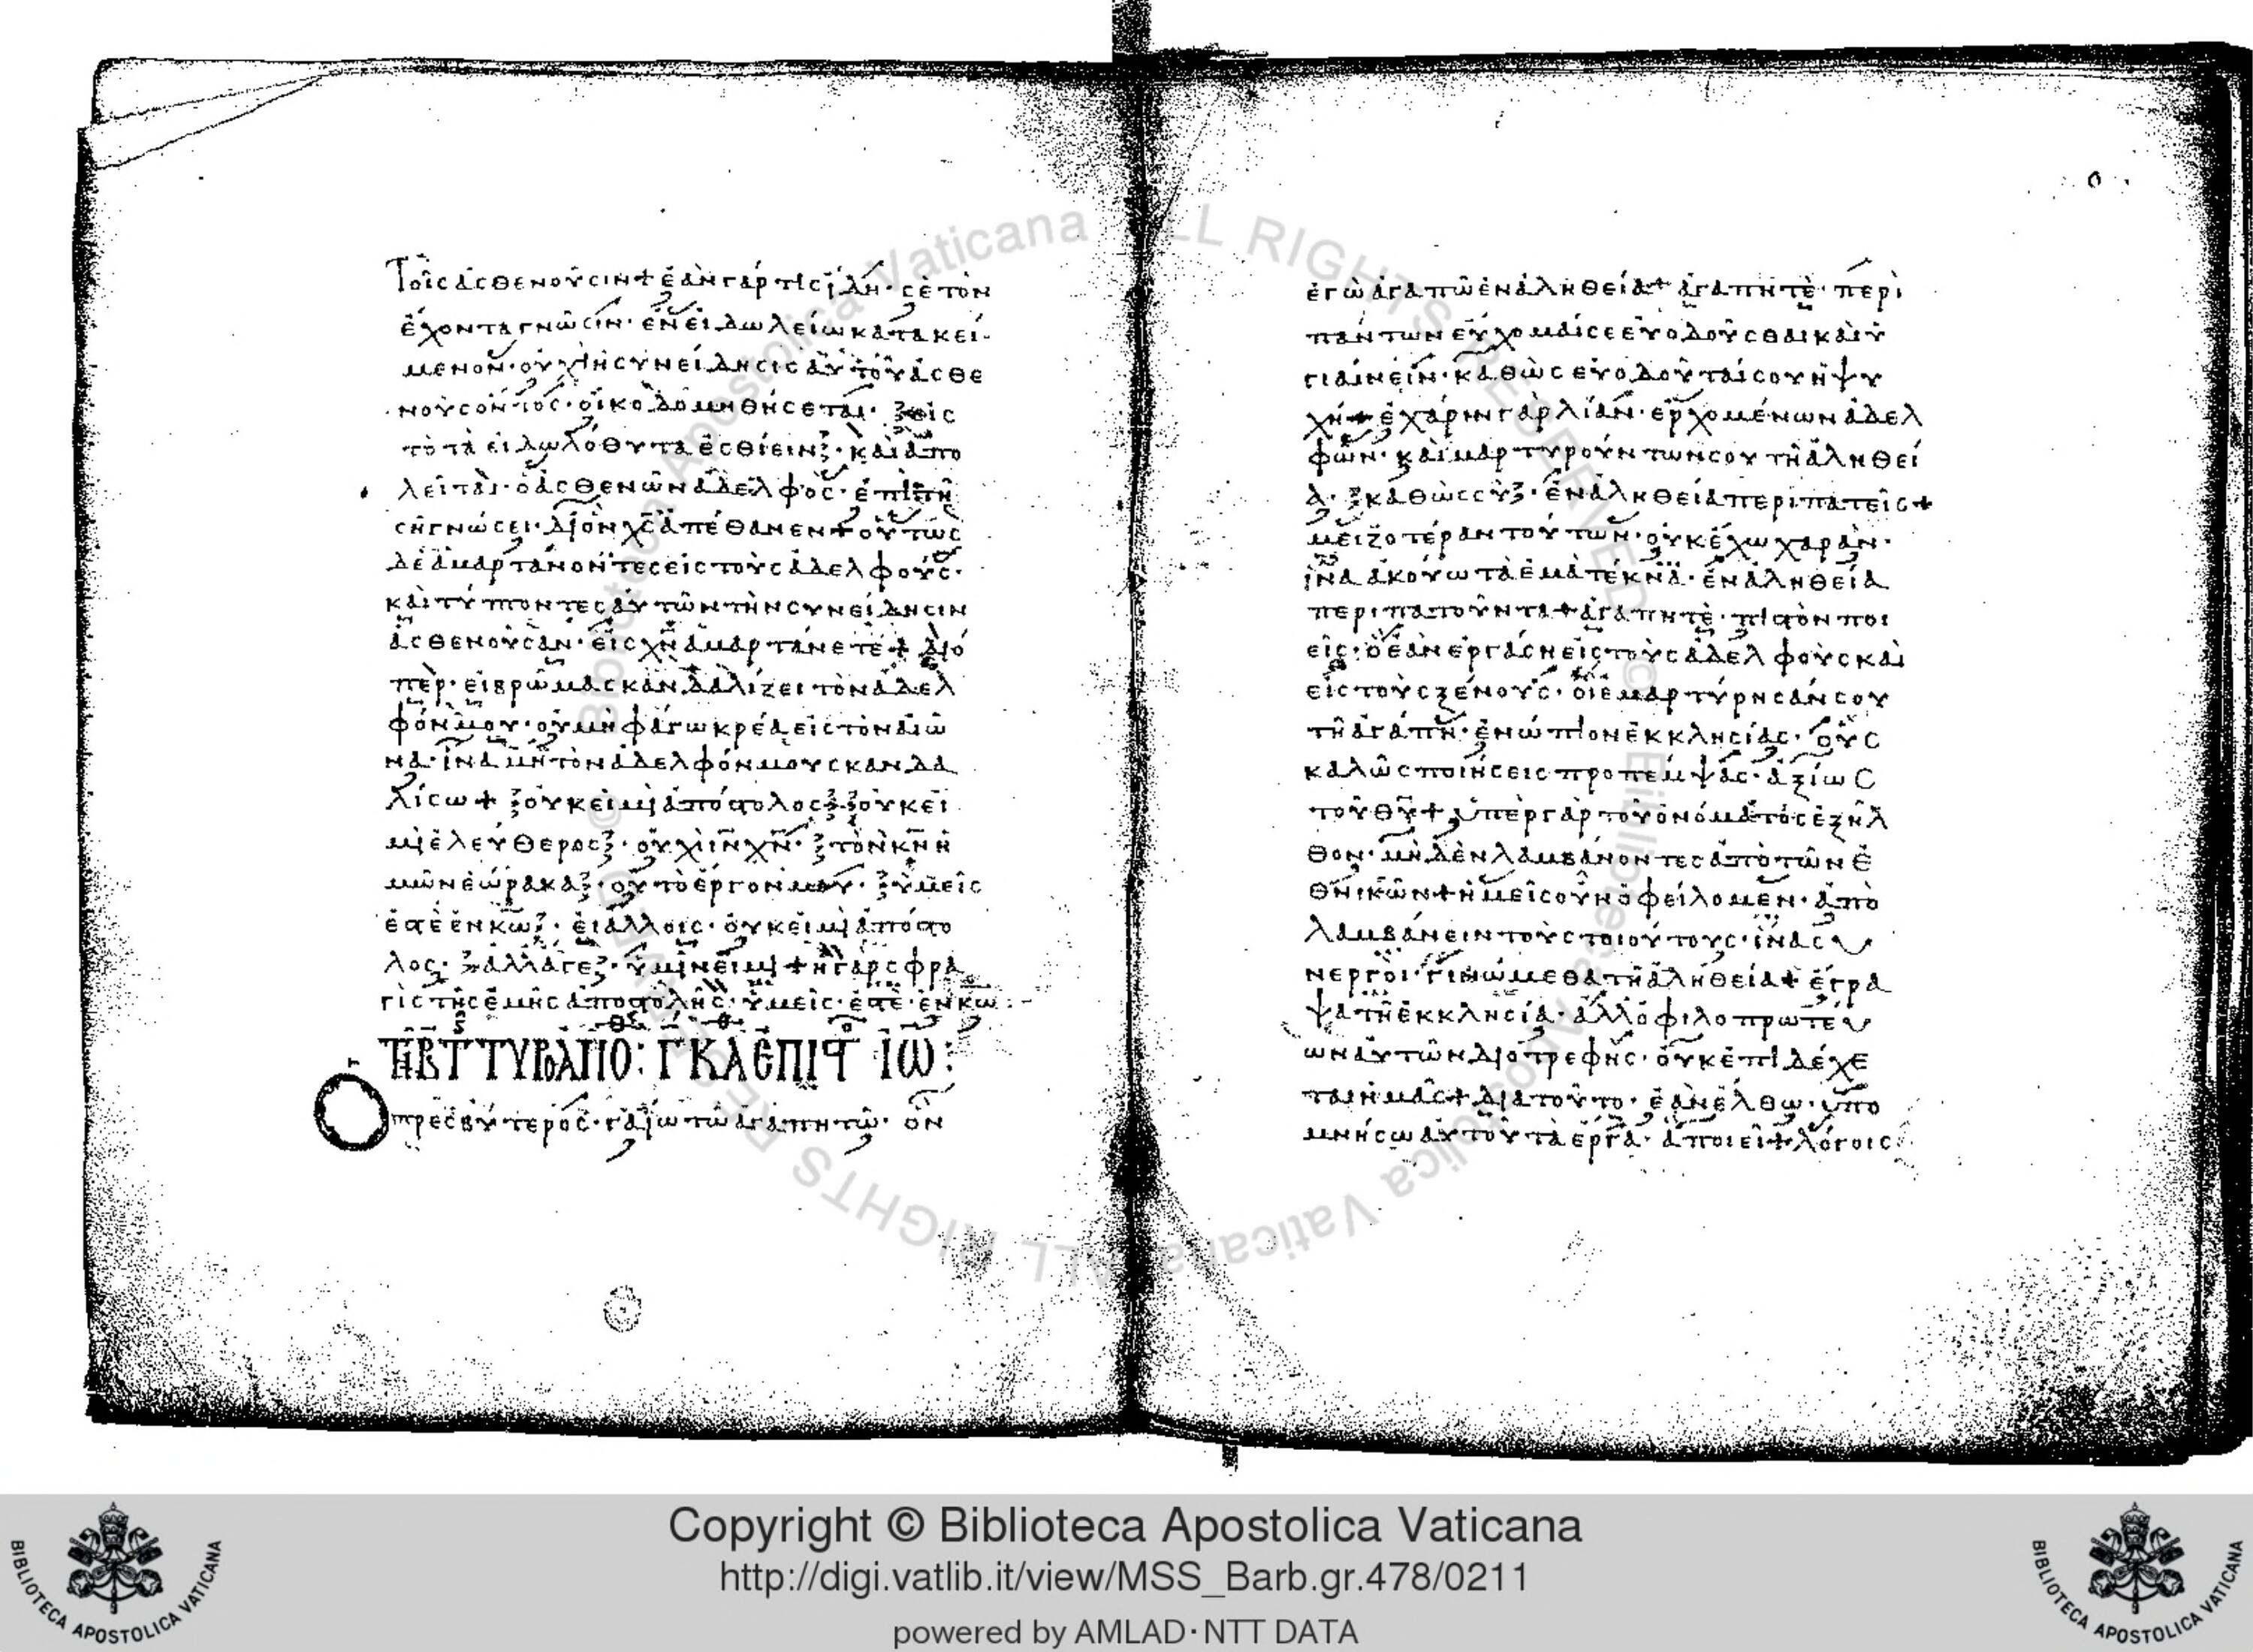 Τοῖς ἀσθενοῦσιν + ἐὰν γάρ τις ἴδη· σὲ τὸν
ἔχοντα γνῶσιν· ἐν εἰδωλείω κατακεί
μενον· οὐχὶ ἡ συνείδησις αὐτοῦ ἀσθε
νοῦς ὄντος· οἰκοδομηθήσεται· ξεἰς
τὸ τὰ εἰδωλόθυτα ἐσθίεινξ· καὶ ἀπο
λεῖται· ὁ ἀσθενῶν ἀδελφὸς· ἐπὶ τῆ
σῆ γνώσει· δι ὃν χς ἀπέθανεν + οὕτως
δὲ ἁμαρτάνοντες εἰς τοὺς ἀδελφούς·
καὶ τύπτοντες αὐτῶν τὴν συνείδησιν
ἀσθενοῦσαν· εἰς χν ἁμαρτάνετε + διό
περ· εἰ βρῶμα σκανδαλίζει τὸν ἀδελ
φόν μου· οὐ μὴ φάγω κρέα εἰς τὸν αἰῶ
να· ἵνα μὴ τὸν ἀδελφόν μου σκανδα
λίσω + ξοὐκ εἰμὶ ἀπόστολοςξ ξοὐκ εἰ
μὶ ἐλεύθεροςξ· οὐχὶ ιν χν· ξτὸν κν ἡ
μῶν ἑώρακαξ· οὐ τὸ ἔργον μου· ξὑμεῖς
ἐστὲ ἐν κωξ· εἰ ἄλλοις· οὐκ εἰμὶ ἀπόστο
λος· ξἀλλάγεξ· ὑμῖν εἰμι + ἡ γὰρ σφρα
γὶς τῆς ἐμῆς ἀποστολῆς· ὑμεῖς· ἐστὲ· ἐν κω:
ΚΑΘ ΕΠΙΣΤ ΙΩ:
Ὁ πρεσβύτερος· γαΐω τῶ ἀγαπητῶ· ὃν
ἐγὼ ἀγαπῶ ἐν ἀληθεία + ἀγαπητὲ· περὶ
πάντων εὔχομαί σε εὐοδοῦσθαι καὶ ὑ
γιαίνειν· καθὼς εὐοδοῦταί σου ἡ ψυ
χή + ἐχάρην γὰρ λίαν· ἐρχομένων ἀδελ
φῶν· καὶ μαρτυρούντων σου τῆ ἀληθεί
α· ξκαθὼς σὺξ· ἐν ἀληθεία περιπατεῖς +
μειζοτέραν τούτων· οὐκ ἔχω χαρὰν·
ἵνα ἀκούω τὰ ἐμὰ τέκνα· ἐν ἀληθεία
περιπατοῦντα + ἀγαπητὲ· πιστὸν ποι
εῖς· ὃ ἐὰν ἐργάση εἰς τοὺς ἀδελφοὺς καὶ
εἰς τοὺς ξένους· οἳ ἐμαρτύρησάν σου
τῆ ἀγάπη· ἐνώπιον ἐκκλησίας· οὓς
καλῶς ποιήσεις προπέμψας· ἀξίως
τοῦ θυ + ὑπὲρ γὰρ τοῦ ὀνόματός ἐξῆλ
θον· μηδὲν λαμβάνοντες ἀπὸ τῶν ἐ
θνικῶν + ἡμεῖς οὖν ὀφείλομεν· ἀπο
λαμβάνειν τοὺς τοιούτους· ἵνα συ
νεργοὶ γινώμεθα τῆ ἀληθεία + ἔγρα
ψα τῆ ἐκκλησία· ἀλλ ὁ φιλοπρωτεύ
ων αὐτῶν διοτρεφὴς· οὐκ ἐπιδέχε
ται ἡμᾶς + διὰ τοῦτο· ἐὰν ἔλθω· ὑπο
μνήσω αὐτοῦ τὰ ἔργα· ἃ ποιεῖ + λόγοις
Copyright © Biblioteca Apostolica Vaticana
http://digi.vatlib.it/view/MSS_Barb.gr.478/0211
powered by AMLAD·NTT DATA
BIBLIOTECA APOSTOLICA VATICANA
BIBLIOTECA APOSTOLICA VATICANA